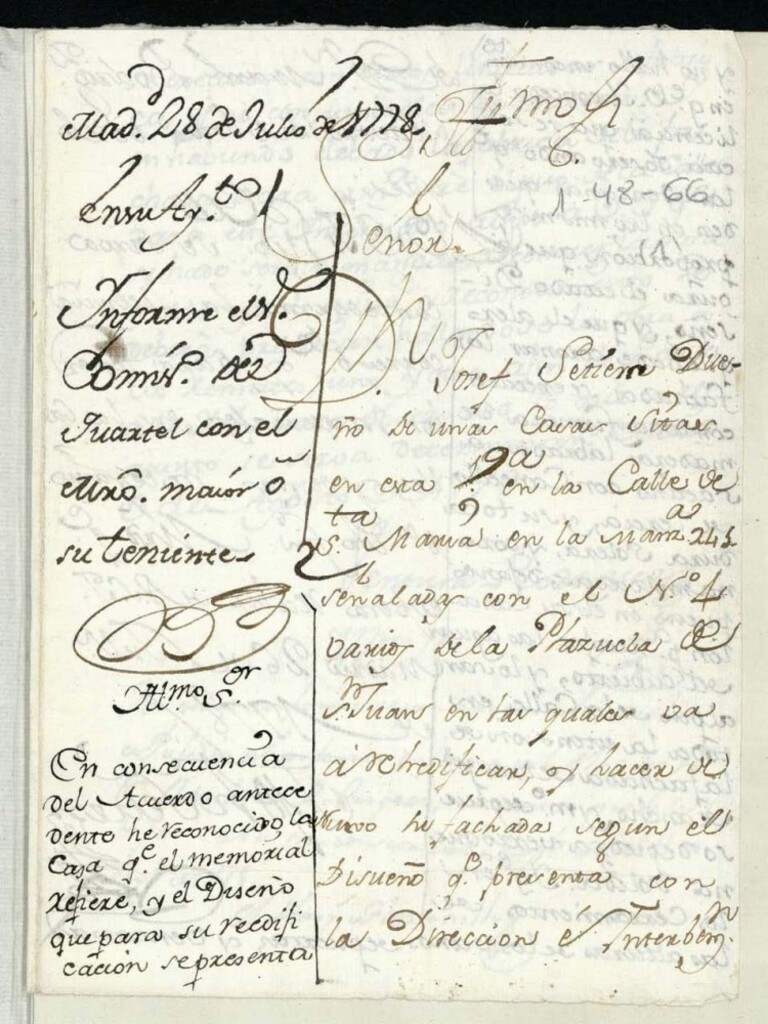 Mad.d 28 de Julio de 1778,
En su Ay.to
Informe el S.
Comis.o del
Quartel con el
Mro. maior ō
su teniente
Yll.mo S.or
En consecuencia
del Acuerdo antece
dente he reconocido la
Casa q.e el memorial
refiere, y el Diseño
que para su reedifi
cacion se presenta
Yllmo
S.
1-48-66
(1)
Señor
D. Josef Due-
ño de unas Casas Sitas
en esta en la Calle de
S.ta Maria en la Manz.a 245
señaladas con el N.o 4
varios de la Plazuela de
S.n Juan en las quales va
á rehedificar, y hacer de
Nuevo la fachada segun el
Disueño q.e presenta con
la Direccion e Interben.n